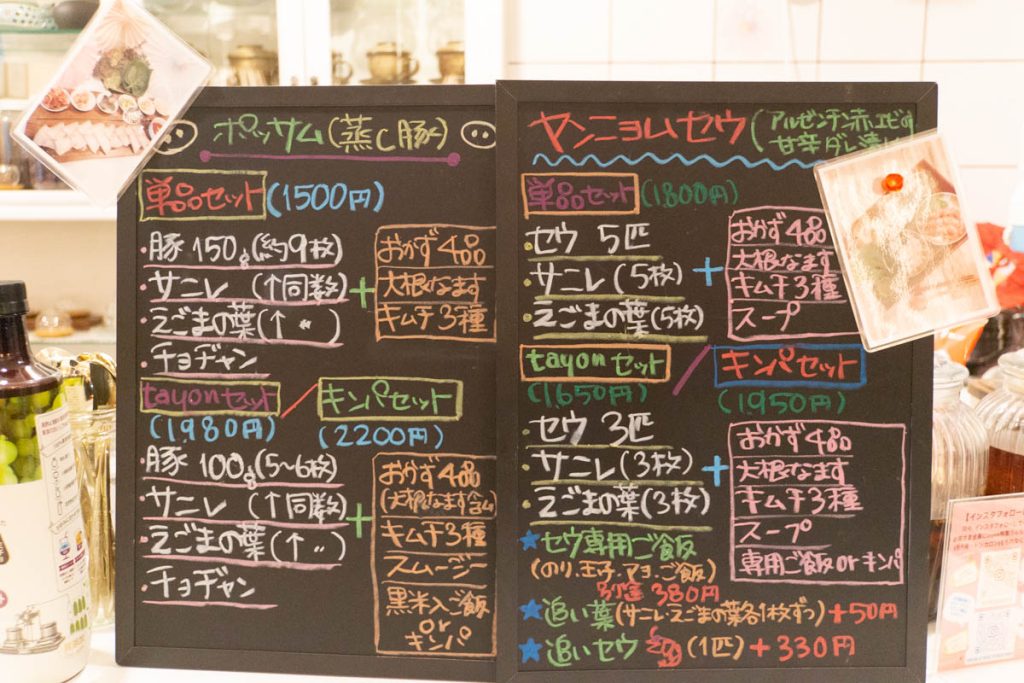 ポッサム(蒸し豚)
単品セット(1500円)
・豚 150g(約9枚)
・サニレ (↑同数)
・えごまの葉(↑ 〃 )
・チョヂャン
+
おかず4品
大根なます
キムチ3種
tayonセット
(1,980円)
/
キンパセット
(2200円)
・豚 100g(5~6枚)
・サニレ (↑同数)
・えごまの葉(↑ 〃 )
・チョヂャン
+
おかず4品
(大根なます含ム)
キムチ3種
スムージー
黒米入ご飯
or
キンパ
ヤンニョムセウ(アルゼンチン赤エビの
甘辛ダレ漬け
単品セット(1800円)
・セウ 5匹
・サニレ(5枚)
・えごまの葉(5枚)
+
おかず4品
大根なます
キムチ3種
スープ
tayonセット
(1,650円)
/
キンパセット
(1,950円)
・セウ 3匹
・サニレ(3枚)
・えごまの葉(3枚)
+
おかず4品
大根なます
キムチ3種
スープ
専用ご飯orキンパ
★セウ専用ご飯
(のり、玉子、マヨ、ご飯)
別途 380円
★追い葉(サニレ・えごまの葉各1枚ずつ)+50円
★追いセウ (1匹)+330円